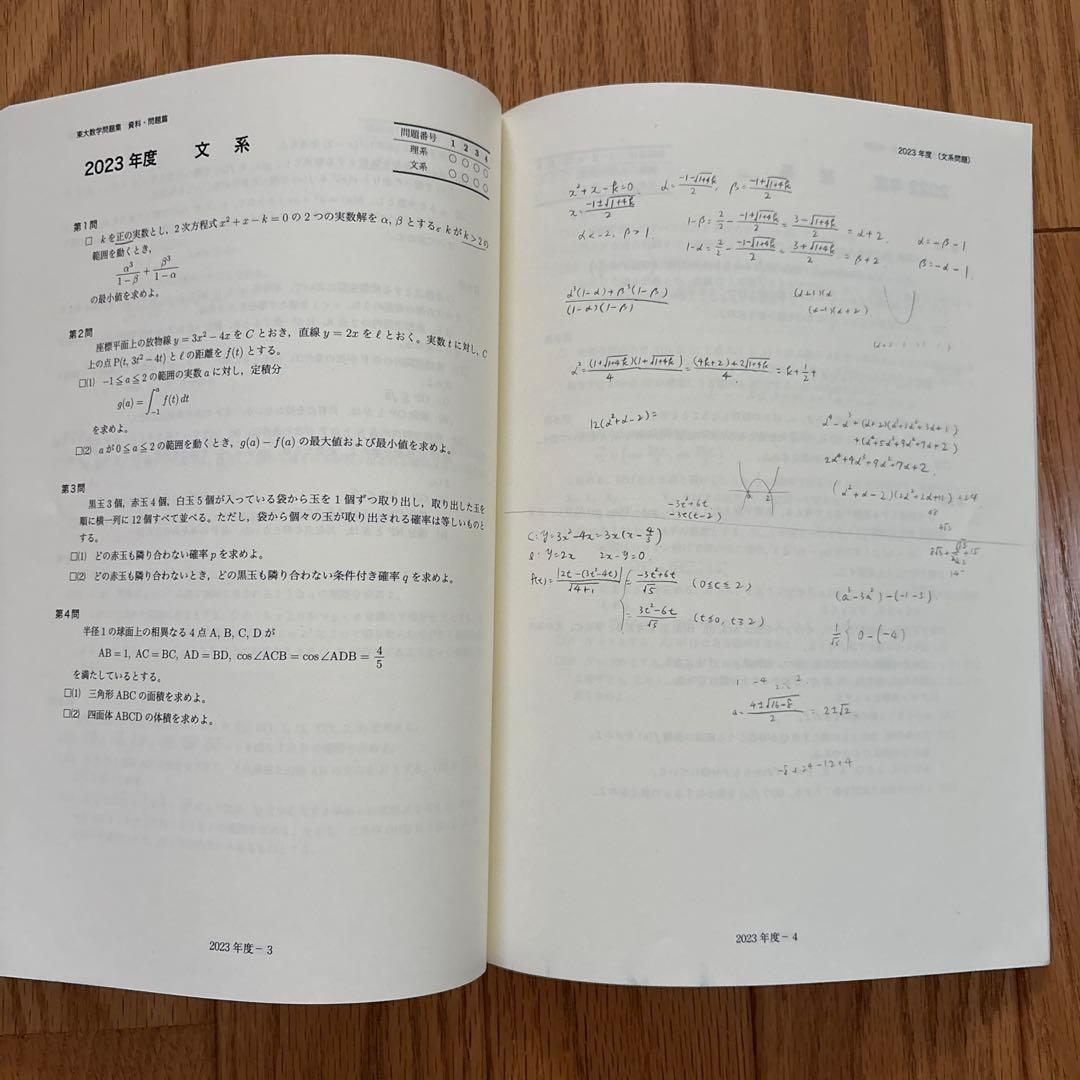 東大数学問題集 資料・問題篇
2023年度 文 系
問題番号 1 2 3 4
理系 ○ ○ ○ ○
文系 ○ ○ ○ ○
第1問
□ kを正の実数とし，2次方程式x²+x−k=0の2つの実数解をα, βとする。kがk>2の
範囲を動くとき，
α³/(1−β) + β³/(1−α)
の最小値を求めよ。
第2問
座標平面上の放物線y=3x²−4xをCとおき，直線y=2xをℓとおく。実数tに対し，C
上の点P(t, 3t²−4t)とℓの距離をf(t)とする。
□(1) −1≦a≦2の範囲の実数aに対し，定積分
g(a)=∫₋₁ᵃ f(t)dt
を求めよ。
□(2) aが0≦a≦2の範囲を動くとき，g(a)−f(a)の最大値および最小値を求めよ。
第3問
黒玉3個，赤玉4個，白玉5個が入っている袋から玉を1個ずつ取り出し，取り出した玉を
順に横一列に12個すべて並べる。ただし，袋から個々の玉が取り出される確率は等しいものと
する。
□(1) どの赤玉も隣り合わない確率pを求めよ。
□(2) どの赤玉も隣り合わないとき，どの黒玉も隣り合わない条件付き確率qを求めよ。
第4問
半径1の球面上の相異なる4点A, B, C, Dが
AB=1, AC=BC, AD=BD, cos∠ACB=cos∠ADB=4/5
を満たしているとする。
□(1) 三角形ABCの面積を求めよ。
□(2) 四面体ABCDの体積を求めよ。
2023年度−3
2023年度（文系問題）
x²+x−k=0 α=(−1−√(1+4k))/2, β=(−1+√(1+4k))/2
x=(−1±√(1+4k))/2
α<−2, β>1
1−β=2/2−(−1+√(1+4k))/2=(3−√(1+4k))/2=α+2. α=−β−1
1−α=2/2−(−1−√(1+4k))/2=(3+√(1+4k))/2=β+2. β=−α−1.
(α³(1−α)+β³(1−β))/((1−α)(1−β))
(α+1)(α
(α−1)(α+2)
α²=(1+√(1+4k))(1+√(1+4k))/4=((4k+2)+2√(1+4k))/4.=k+1/2+
12(α²+α−2)=
α⁴−α³+(α+2)(α³+3α²+3α+1)
+(α⁴+5α³+9α²+7α+2)
2α⁴+4α³+9α²+7α+2.
−3t²+6t
−3t(t−2)
C: y=3x²−4x=3x(x−4/3)
ℓ: y=2x 2x−y=0.
f(t)=|2t−(3t²−4t)|/√(4+1) { =(−3t²+6t)/√5 (0≦t≦2)
=(3t²−6t)/√5 (t≦0, t≧2)
(a³−3a²)−(−1−3)
1/√5 { 0−(−4)
1 −4 2
a=(4±√(16−8))/2=2±√2
−8+24−12+4
2023年度−4